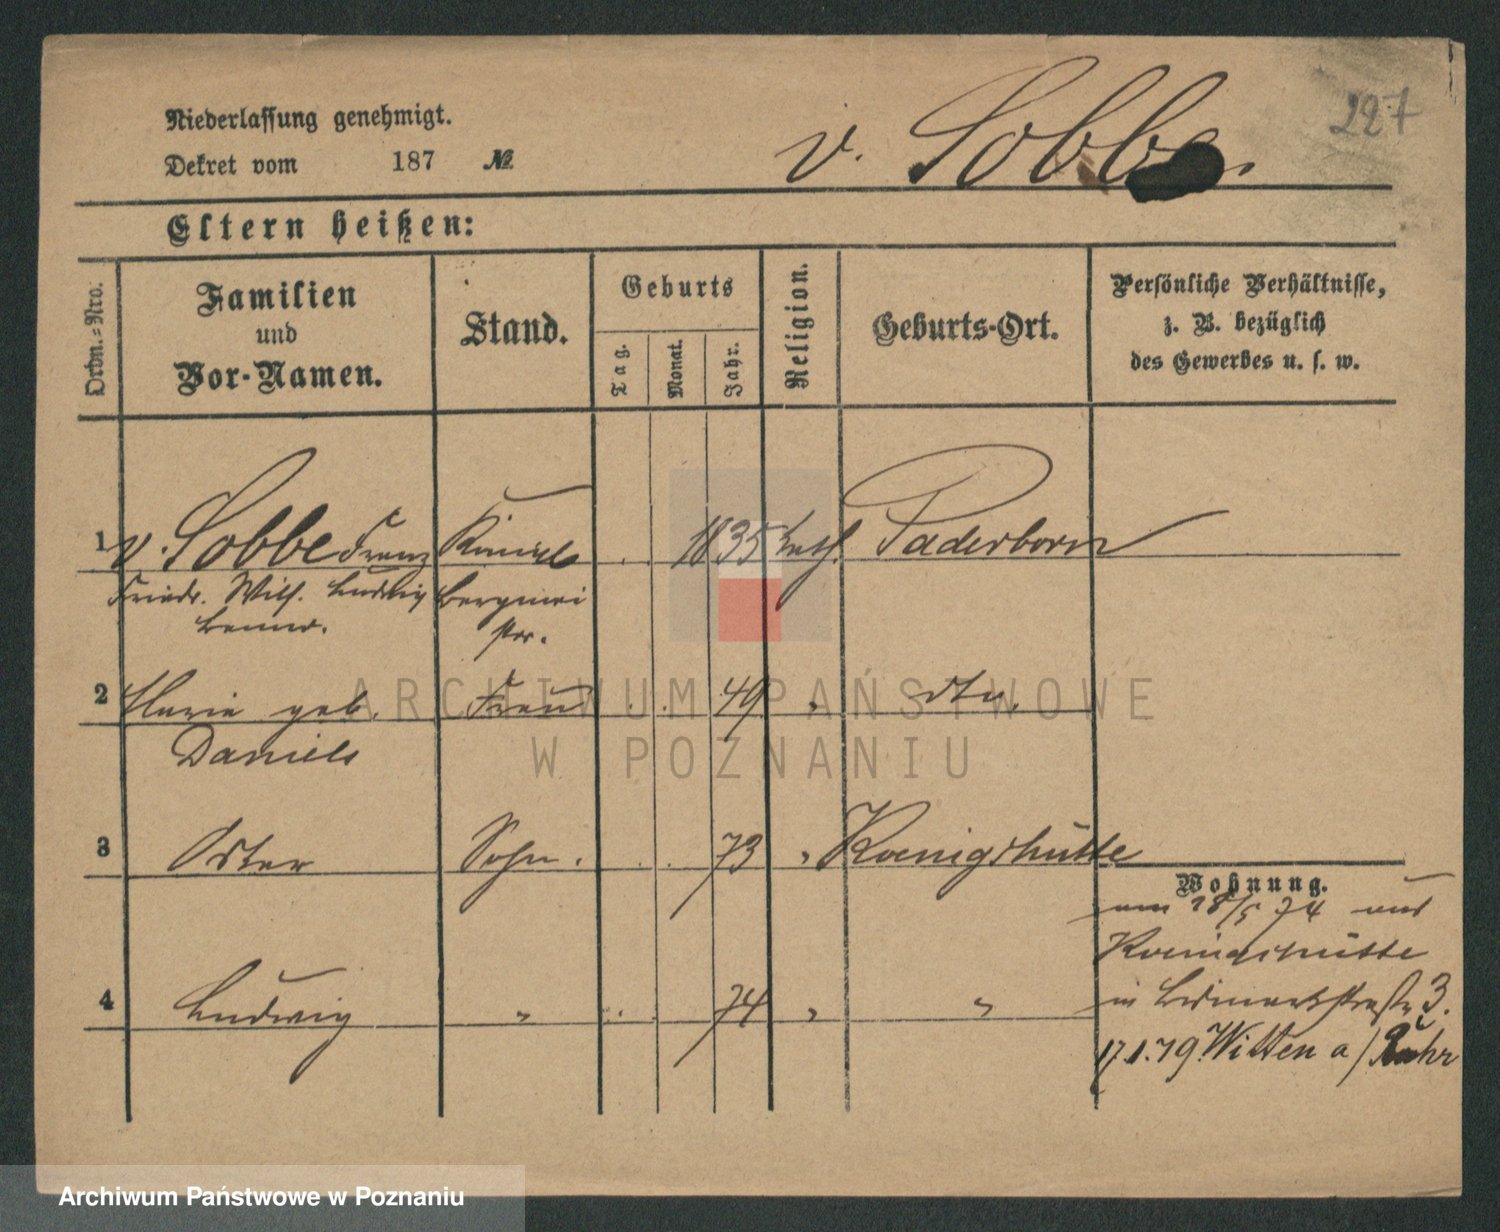 227
Niederlassung genehmigt.
v. Sobbe.
Dekret vom 187 №
Eltern heißen:
Ordn.-Nro.
Familien
und
Vor-Namen.
Stand.
Geburts
Tag.
Monat.
Jahr.
Religion.
Geburts-Ort.
Persönliche Verhältnisse,
z. B. bezüglich
des Gewerbes u. s. w.
1 v. Sobbe Franz Königl 1835 kath. Paderborn
Friedr. Wilh. Ludwig Bergmei
ster.
2 Marie geb. Frau 49 " dto.
Daniels
3 Oskar Sohn. 73 " Koenigshütte
Wohnung.
am 28/5 74 aus
Koenigshütte
4 Ludwig " 74 " "
in Bismarkstraße 3.
17.1.79. Witten a/Ruhr
ARCHIWUM PAŃSTWOWE
W POZNANIU
Archiwum Państwowe w Poznaniu